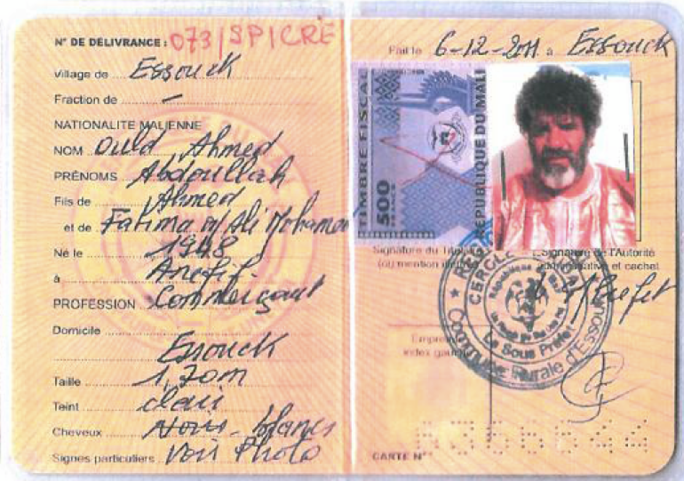 N° DE DÉLIVRANCE : 073/SPICRE
Village de Essouck
Fraction de –
NATIONALITE MALIENNE
NOM Ould Ahmed
PRÉNOMS Abdoullah
Fils de Ahmed
et de Fatima W/ Ali Mohamed
Né le 1948
à Anefif
PROFESSION Commerçant
Domicile Essouck
Taille 1,70m
Teint clair
Cheveux Noirs - blancs
Signes particuliers Voir Photo
Fait le 6-12-2011 à Essouck
TIMBRE FISCAL
500
RÉPUBLIQUE DU MALI
Signature du
Signature de l'Autorité
et cachet
CERCLE
Le Sous Préfet
Commune Rurale d'Essouk
Empreinte
index gauche
CARTE N°